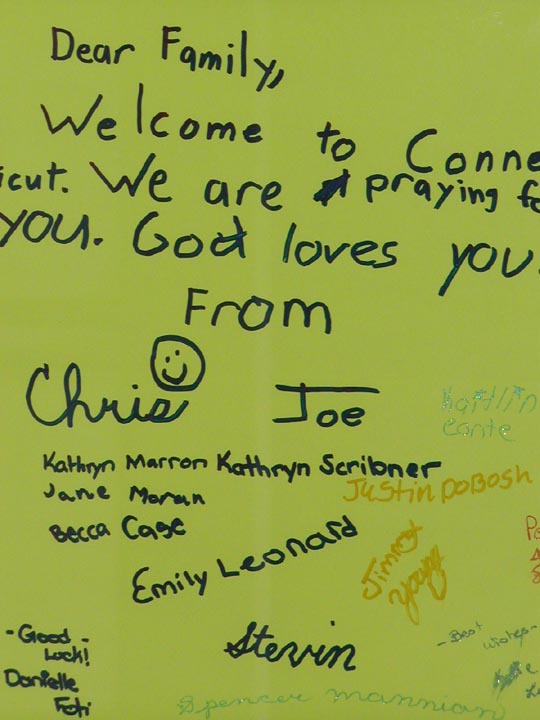 Dear Family,
Welcome to Conne
icut. We are praying fo
you. God loves you.
From
Chris Joe
Kaitlin
Conte
Kathryn Marron Kathryn Scribner
Jane Moran
Justin DoBosh
Becca Cage
Emily Leonard
Jimmy
Young
- Good -
Luck!
Danielle
Foti
Stevin
- Best
wishes -
Spencer Mannian